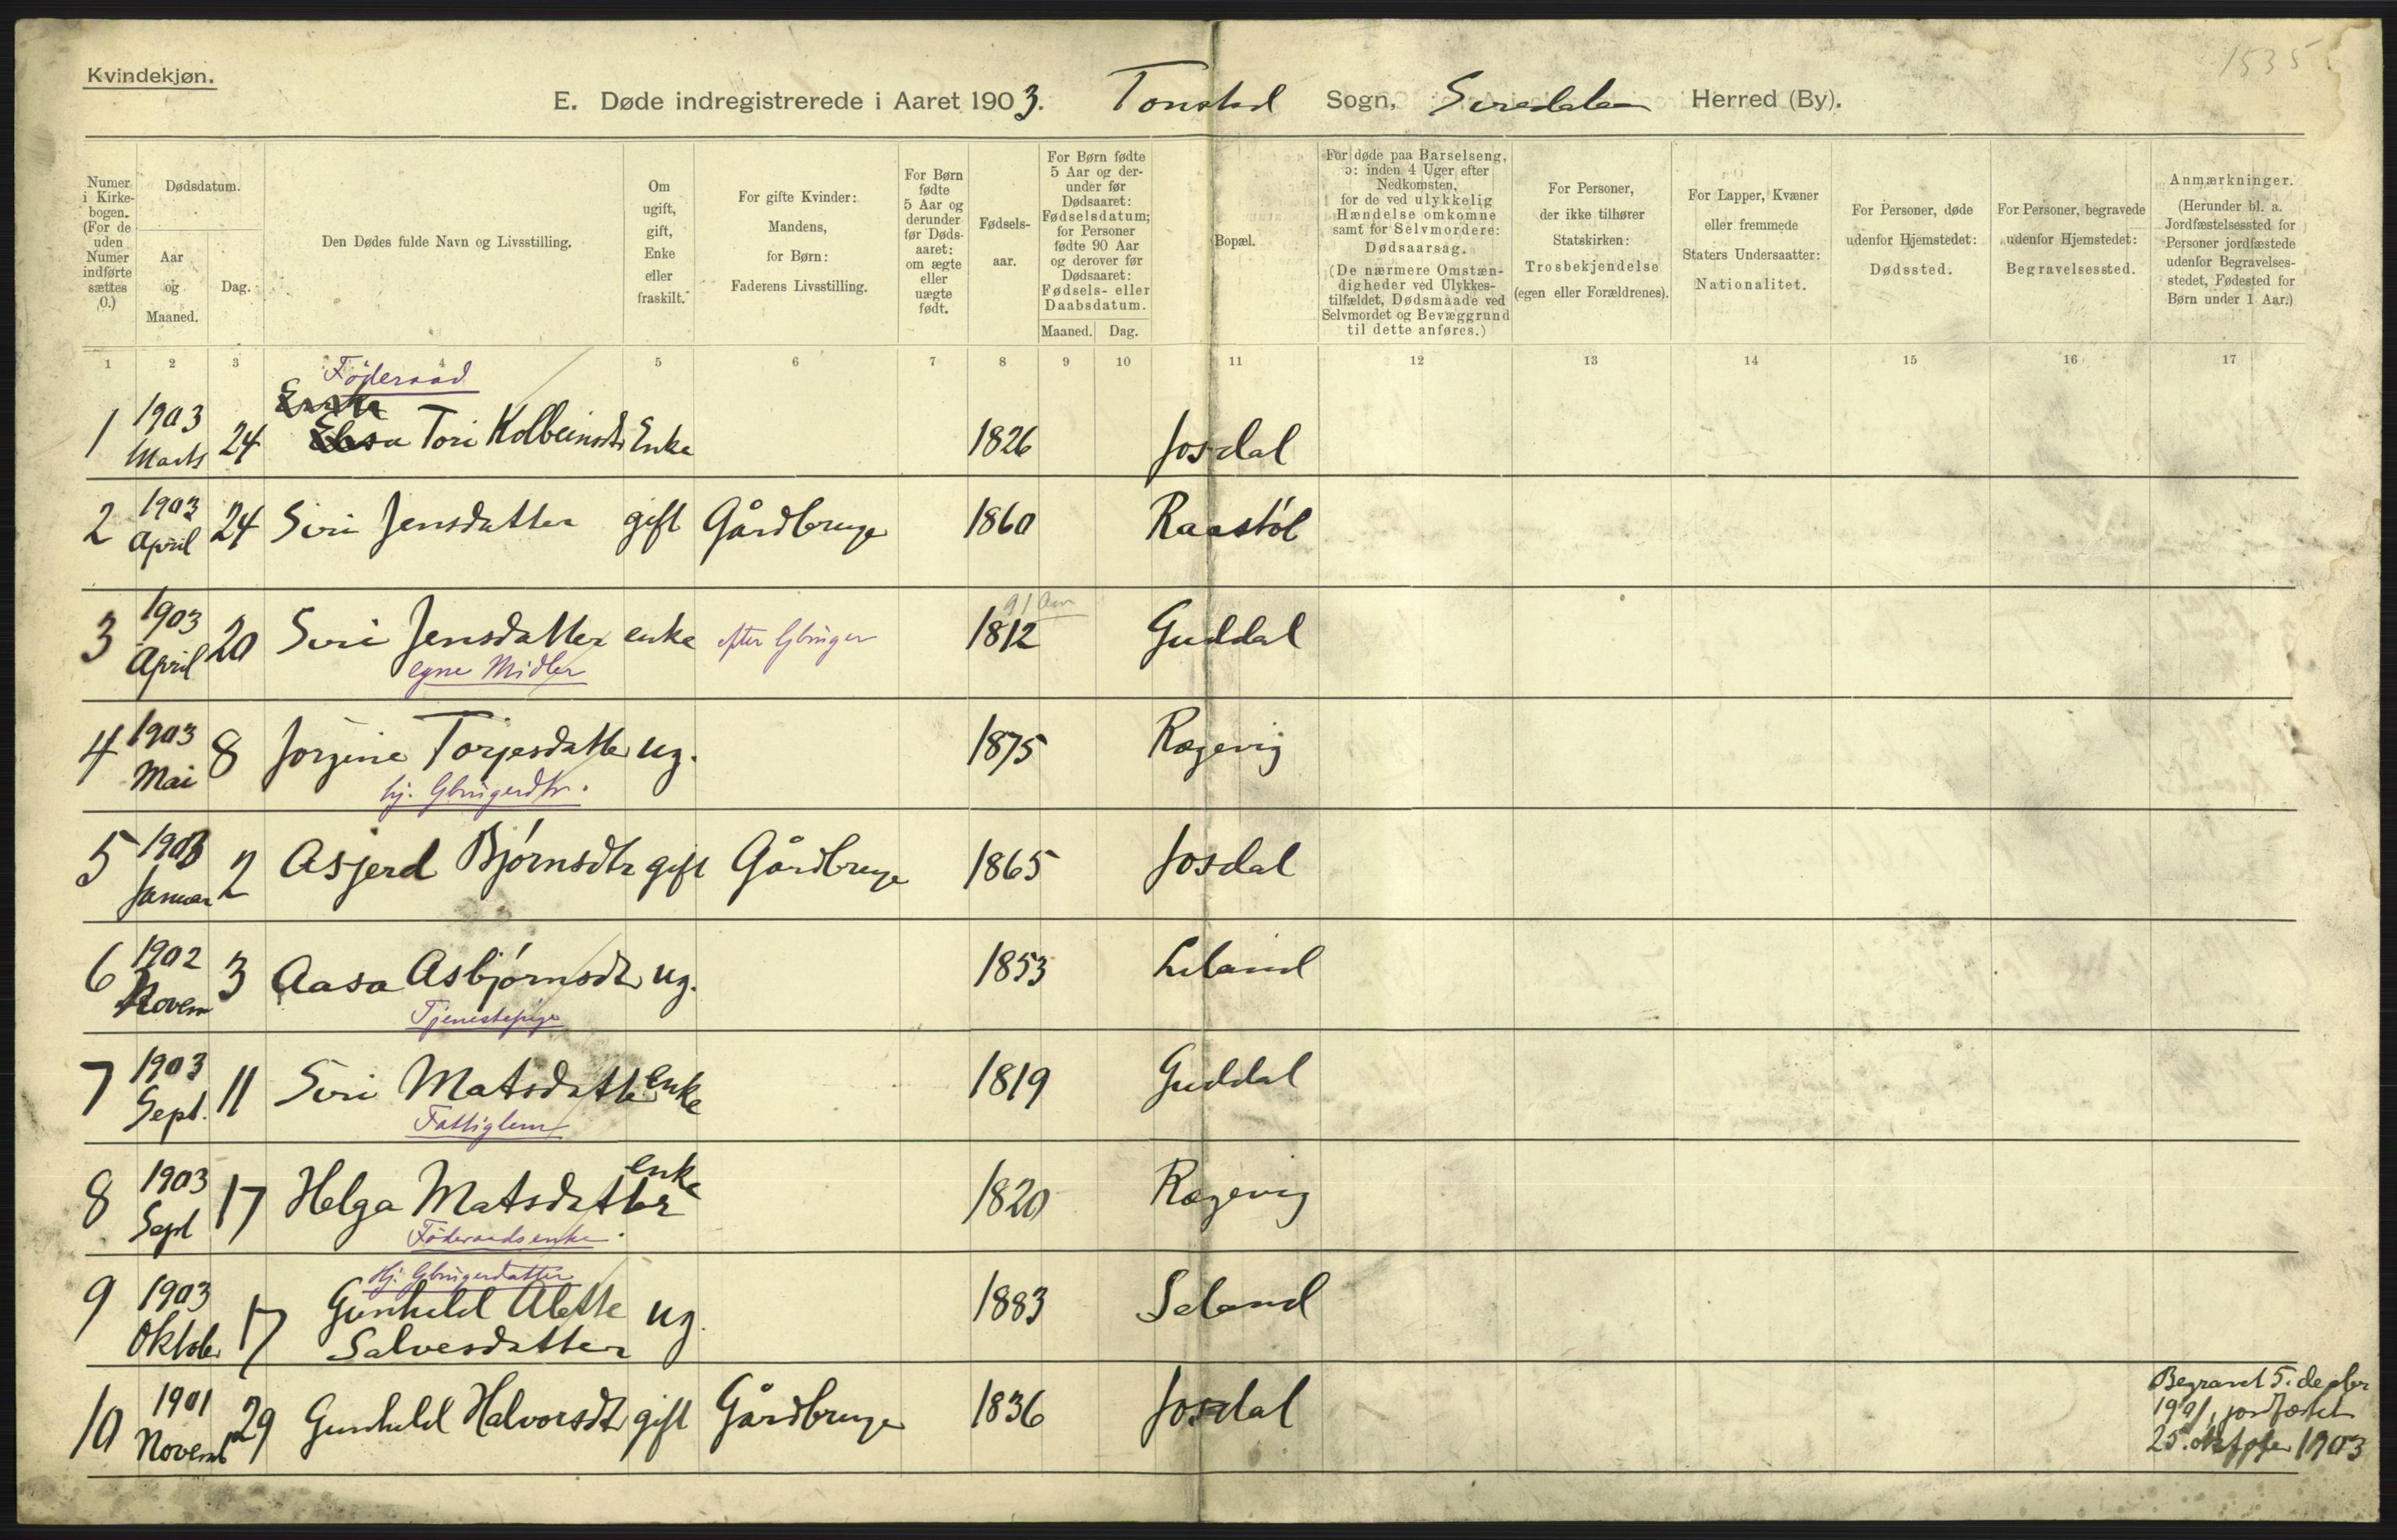 1535
Kvindekjøn.
E. Døde indregistrerede i Aaret 1903. Tonstad Sogn, Siredalen Herred (By).
Numer i Kirke-bogen. (For de uden Numer indførte sættes 0.)
Dødsdatum.
Aar og Maaned.
Dag.
Den Dødes fulde Navn og Livsstilling.
Om ugift, gift, Enke eller fraskilt.
For gifte Kvinder: Mandens, for Børn: Faderens Livsstilling.
For Børn fødte 5 Aar og derunder før Døds-aaret: om ægte eller uægte født.
Fødsels-aar.
For Børn fødte 5 Aar og der-under før Dødsaaret: Fødselsdatum; for Personer fødte 90 Aar og derover før Dødsaaret: Fødsels- eller Daabsdatum.
Maaned. Dag.
Bopæl.
For døde paa Barselseng, ɔ: inden 4 Uger efter Nedkomsten, for de ved ulykkelig Hændelse omkomne samt for Selvmordere: Dødsaarsag. (De nærmere Omstæn-digheder ved Ulykkes-tilfældet, Dødsmaade ved Selvmordet og Bevæggrund til dette anføres.)
For Personer, der ikke tilhører Statskirken: Trosbekjendelse (egen eller Forældrenes).
For Lapper, Kvæner eller fremmede Staters Undersaatter: Nationalitet.
For Personer, døde udenfor Hjemstedet: Dødssted.
For Personer, begravede udenfor Hjemstedet: Begravelsessted.
Anmærkninger. (Herunder bl. a. Jordfæstelsessted for Personer jordfæstede udenfor Begravelses-stedet, Fødested for Børn under 1 Aar.)
1 2 3 4 5 6 7 8 9 10 11 12 13 14 15 16 17
Føderaad
1 1903 Marts 24 Tori Kolbeinsdtr Enke 1826 Josdal
2 1903 April 24 Siri Jensdatter gift Gårdbruger 1860 Raastøl
91 Aar
3 1903 April 20 Siri Jensdatter enke efter Gbruger 1812 Guddal
egne Midler
4 1903 Mai 8 Jorgine Torjesdatter ug. 1875 Rægevig
hj. Gbrugerdtr.
5 1903 Januar 2 Asjerd Bjørnsdtr gift Gårdbruger 1865 Josdal
6 1902 Novem 3 Aasa Asbjørnsdtr ug. 1853 Liland
Tjenestepige
7 1903 Sept. 11 Siri Matsdatter enke 1819 Guddal
Fattiglem
8 1903 Sept 17 Helga Matsdatter enke 1820 Rægevig
Føderaadsenke.
Hj. Gbrugerdatter
9 1903 Oktober 17 Gunhild Alette ug. 1883 Seland
Salvesdatter
10 1901 Novemb 29 Gunhild Halvorsdtr gift Gårdbruger 1836 Josdal
Begravet 5. decbr
1901, jordfæstet
25. oktober 1903